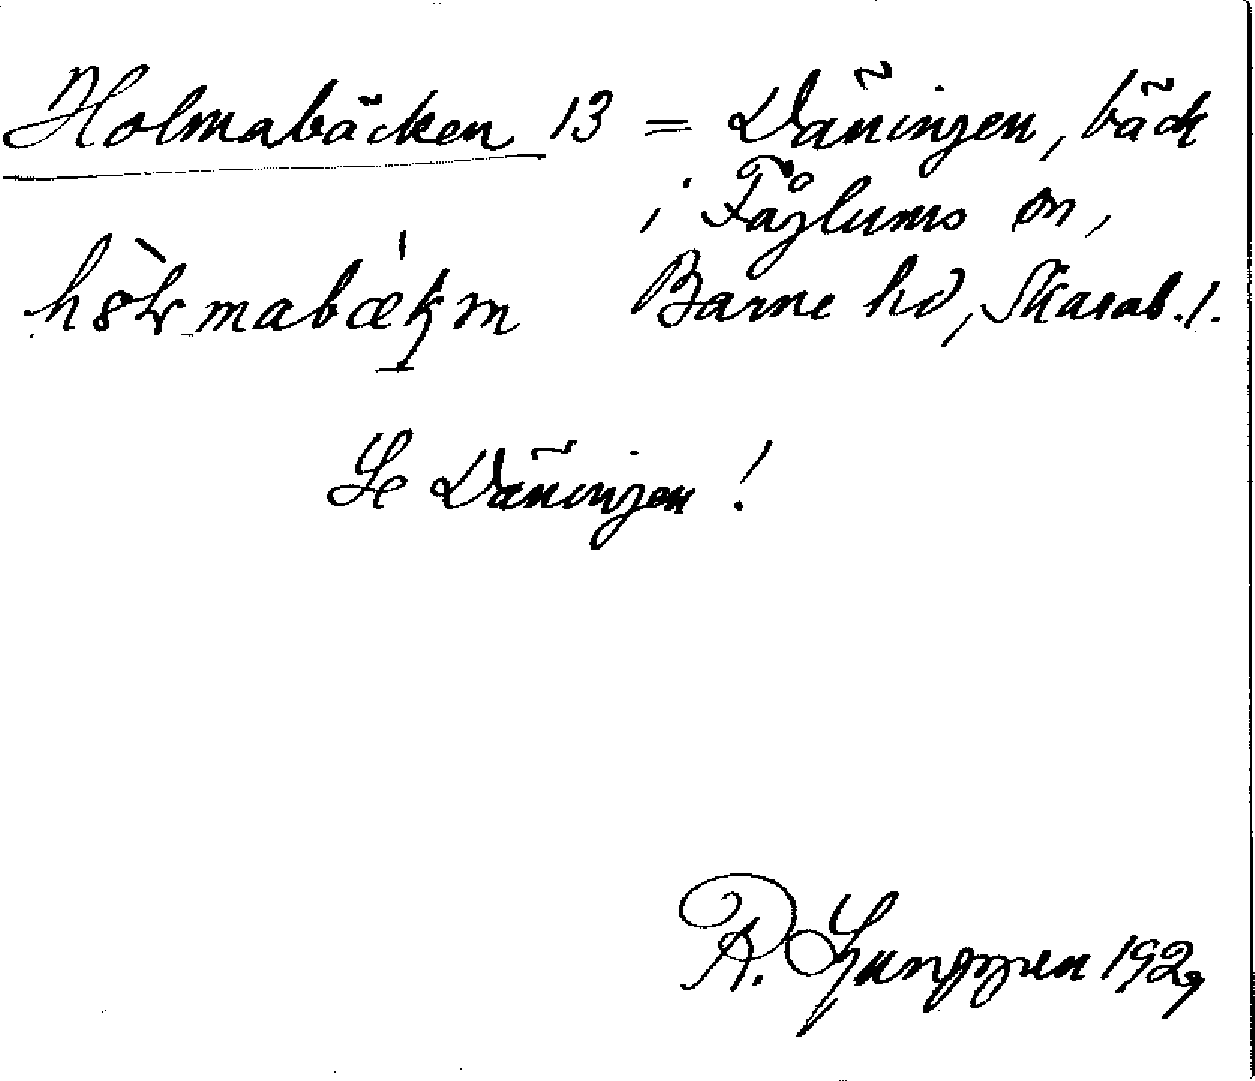 Holmabäcken 13 = Däningen, bäck
i Fåglums sn,
Barne hd, Skarab. l.
Se Däningen!
R. Ljunggren 1929